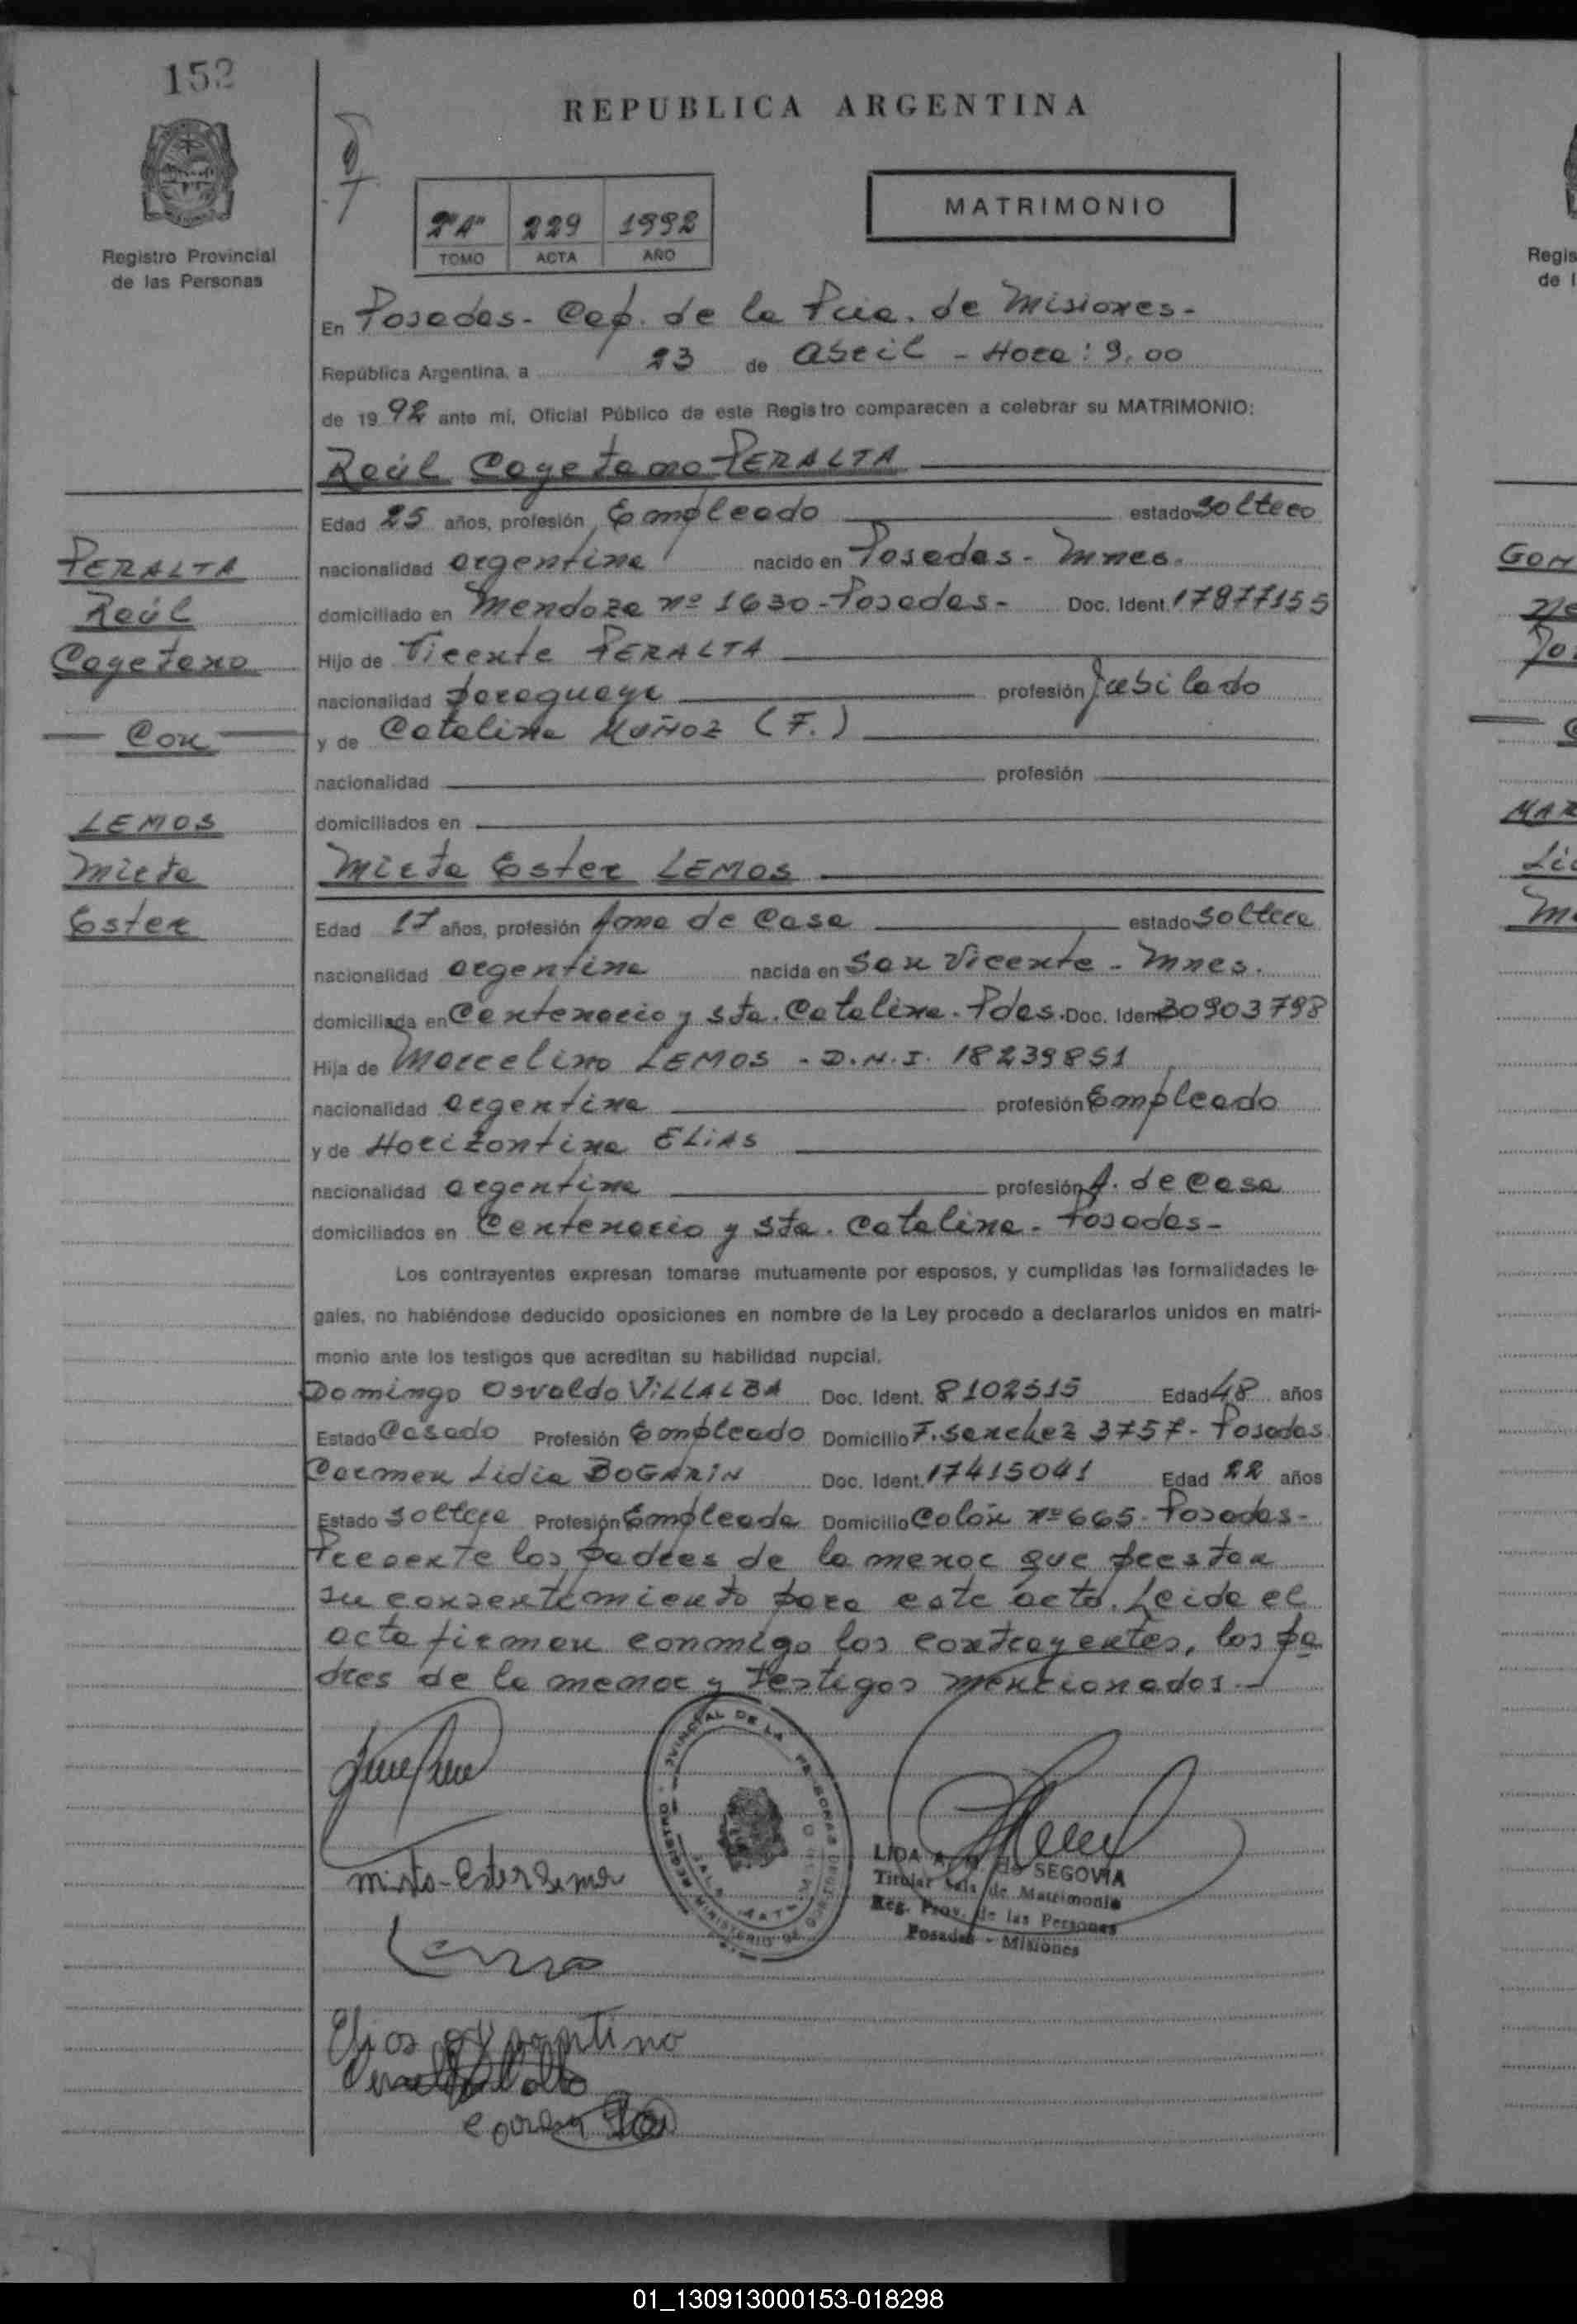 152
REPUBLICA ARGENTINA
MATRIMONIO
2º "A" 229 1992
TOMO ACTA AÑO
Registro Provincial
de las Personas
En Posadas - Cap. de la Pcia. de Misiones -
República Argentina, a 23 de Abril - Hora: 9,00
de 1992 ante mi, Oficial Público de este Registro comparecen a celebrar su MATRIMONIO:
Raúl Cayetano PERALTA
Edad 25 años, profesión Empleado estado soltero
nacionalidad argentina nacido en Posadas - Mnes.
domiciliado en Mendoza nº 1630 - Posadas - Doc. Ident. 17877155
Hijo de Vicente PERALTA
nacionalidad paraguaya profesión Jubilado
y de Catalina MUÑOZ (F.)
nacionalidad profesión
domiciliados en
Mirta Ester LEMOS
Edad 17 años, profesión Ama de Casa estado soltera
nacionalidad argentina nacida en San Vicente - Mnes.
domiciliada en Centenario y Sta. Catalina - Pdas. Doc. Ident. 30903798
Hija de Marcelino LEMOS - D.N.I. 18239851
nacionalidad argentina profesión Empleado
y de Horizontina ELIAS
nacionalidad argentina profesión A. de Casa
domiciliados en Centenario y Sta. Catalina - Posadas -
Los contrayentes expresan tomarse mutuamente por esposos, y cumplidas las formalidades le-
gales, no habiéndose deducido oposiciones en nombre de la Ley procedo a declararlos unidos en matri-
monio ante los testigos que acreditan su habilidad nupcial.
Domingo Osvaldo VILLALBA Doc. Ident. 8102515 Edad 48 años
Estado Casado Profesión Empleado Domicilio F. Sanchez 3757 - Posadas
Carmen Lidia BOGARIN Doc. Ident. 17415041 Edad 22 años
Estado soltera Profesión Empleada Domicilio Colón nº 665 - Posadas -
Presente los padres de la menor que prestan
su consentimiento para este acto. Leida el
acta firman conmigo los contrayentes, los pa
dres de la menor y testigos mencionados -
PERALTA
Raúl
Cayetano
Con
LEMOS
Mirta
Ester
LIDA A. de SEGOVIA
Titular Sala de Matrimonio
Reg. Prov. de las Personas
Posadas - Misiones
GOM
MAR
01_130913000153-018298